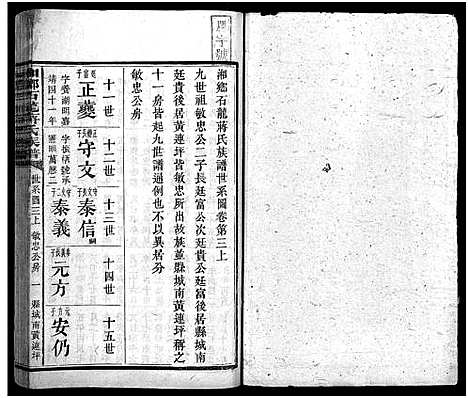 湘鄉石龍蔣氏族譜世系圖卷第三上
九世祖敏忠公二子長廷富公次廷貴公廷富後居縣城南
廷貴後居黃連坪皆敏忠所出故族並縣城南黃連坪稱之
十一房皆起九世譜通例也不以異居分
敏忠公房
十一世
十二世
十三世
十四世
十五世
正夔
守文
泰信
泰義
元方
安仍
字夔湖明嘉
靖四十一年
世系圖三上
敏忠公房
一
縣城南黃連坪